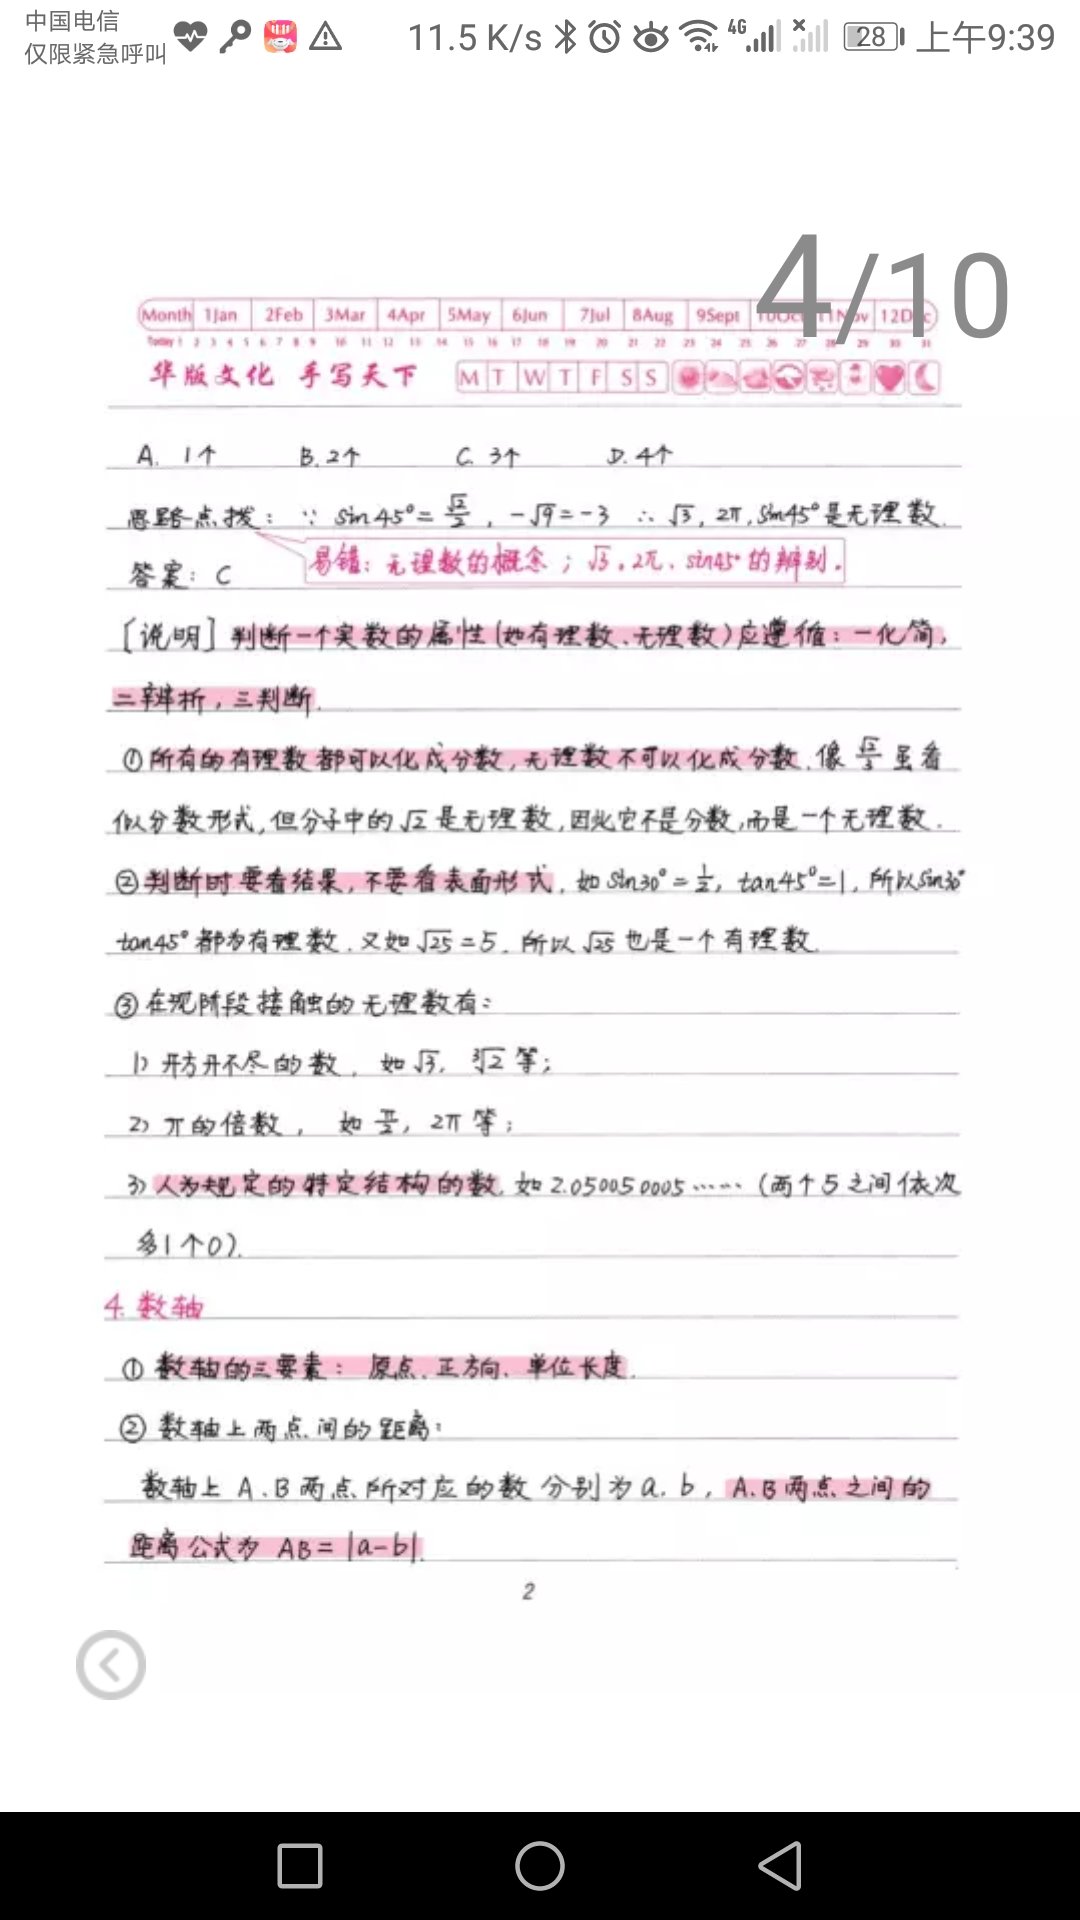 中国电信
仅限紧急呼叫
11.5 K/s 4G 28 上午9:39
4/10
Month 1Jan 2Feb 3Mar 4Apr 5May 6Jun 7Jul 8Aug 9Sept 10Oct 11Nov 12Dec
Today 1 2 3 4 5 6 7 8 9 10 11 12 13 14 15 16 17 18 19 20 21 22 23 24 25 26 27 28 29 30 31
华版文化 手写天下 M T W T F S S
A. 1个 B. 2个 C. 3个 D. 4个
思路点拨：∵ sin45°=√2/2，-√9=-3 ∴ √3，2π，sin45°是无理数.
易错：无理数的概念；√3、2π、sin45°的辨别.
答案：C
[说明]判断一个实数的属性(如有理数、无理数)应遵循：一化简，
二辨析，三判断.
①所有的有理数都可以化成分数，无理数不可以化成分数.像√2/2虽看
似分数形式，但分子中的√2是无理数，因此它不是分数，而是一个无理数.
②判断时要看结果，不要看表面形式，如sin30°=1/2，tan45°=1，所以sin30°
tan45°都为有理数.又如√25=5.所以√25也是一个有理数.
③在现阶段接触的无理数有：
1)开方开不尽的数，如√3，∛2等；
2)π的倍数，如π/2，2π等；
3)人为规定的特定结构的数，如2.050050005……(两个5之间依次
多1个0).
4.数轴
①数轴的三要素：原点、正方向、单位长度.
②数轴上两点间的距离：
数轴上A、B两点所对应的数分别为a、b，A、B两点之间的
距离公式为AB=|a-b|.
2